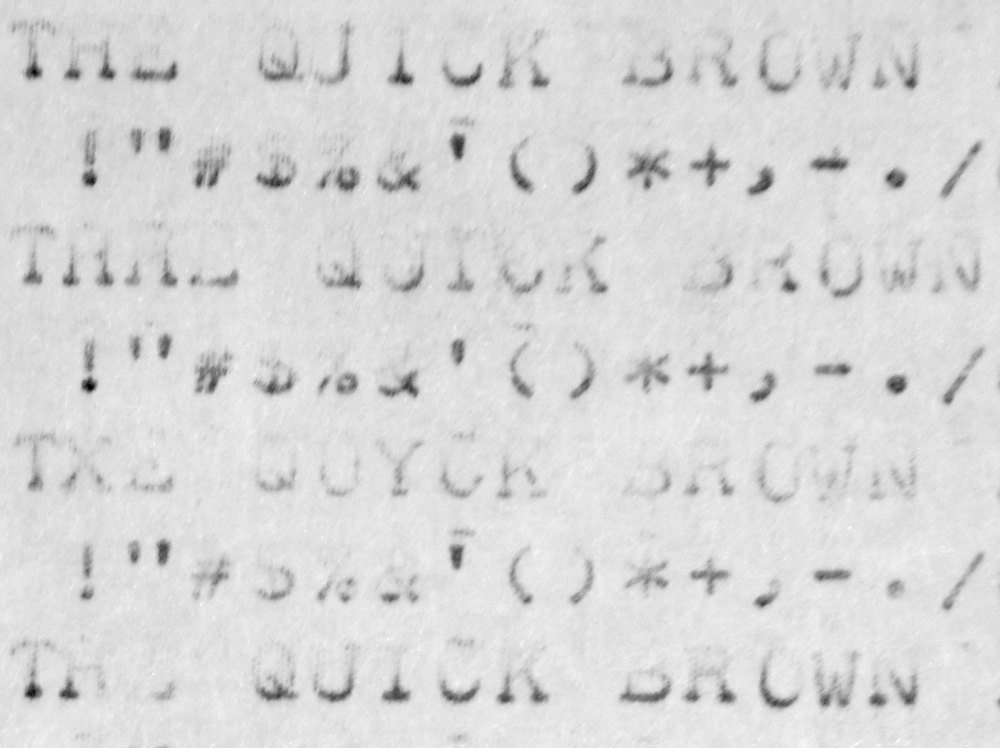 THE QUICK BROWN
!"#$%&'()*+,-./
THHE QUICK BROWN
!"#$%&'()*+,-./
TXE QUYCK BROWN
!"#$%&'()*+,-./
THE QUICK BROWN